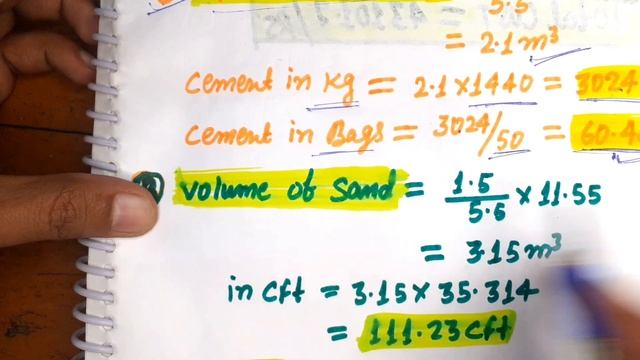 5.5
= 2.1 m³
Cement in Kg = 2.1 x 1440 = 3024
Cement in Bags = 3024/50 = 60.4
Volume of Sand = 1.5/5.5 x 11.55
= 3.15 m³
in cft = 3.15 x 35.314
= 111.23 cft